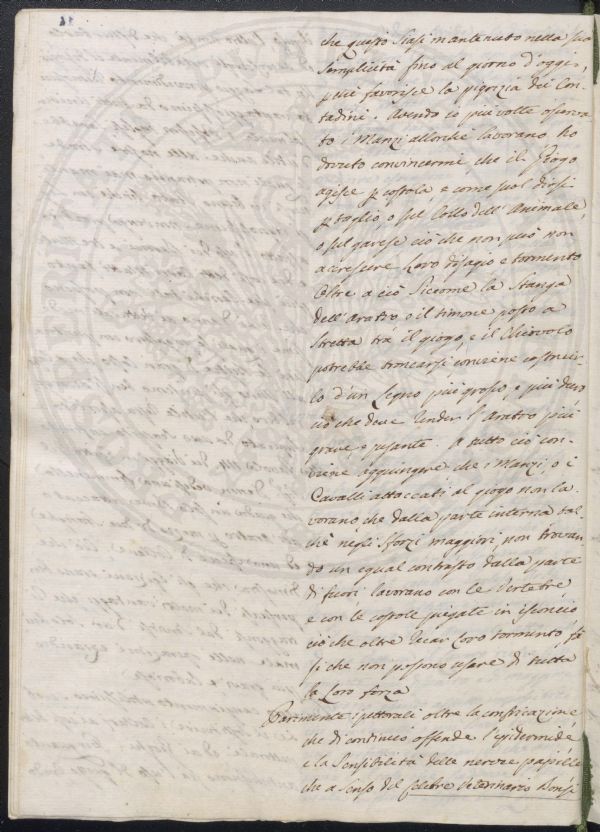 che questo siasi mantenuto nella sua
semplicità fino al giorno d'oggi,
favorisce la pigrizia dei Con-
tadini. Avendo io più volte osserva-
to i Manzi allorchè lavorano, ho
dovuto convincermi che il Giogo
agisce p costola, e come suol dirsi
p taglio, o sul Collo dell'Animale,
o sul garese ciò che non può non
accrescere Loro disagio e tormento
Oltre a ciò siccome la Stanga
dell'Aratro o il timone posto a
stretta trà il giogo, e il Chiovolo
potrebbe troncarsi conviene costruir-
lo d'un Legno più grosso, e più duro
ciò che deve render l'Aratro più
grave e pesante. A tutto ciò con-
viene aggiungere che i Manzi, o i
Cavalli attaccati al giogo non la-
vorano che dalla parte interna tal-
chè negli sforzi maggiori non trovan-
do un egual contrasto dalla parte
di fuori lavorano con le Vertebre
e con le costole piegate in
ciò che oltre recar Loro tormento fà
si che non possono usare di tutta
la Loro forza
Parimente i pettorali oltre la confricazione
che di continuo offende l'epidermide
e la sensibilità delle nervee papille
che a senso del celebre Veterinario Bonsi